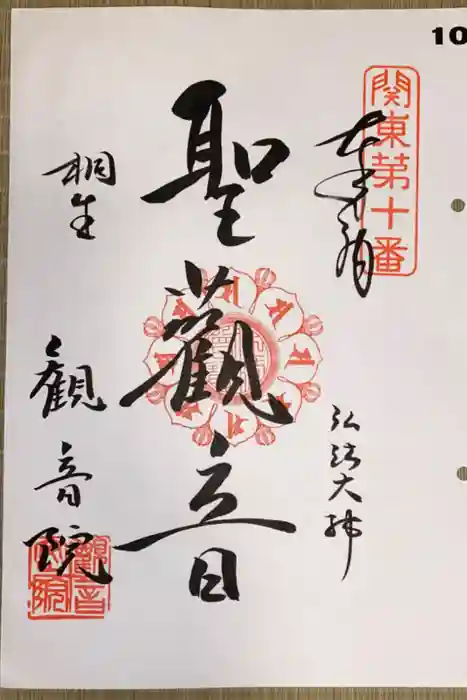 10
関東第十番
奉拝
弘法大師
聖觀音
桐生
觀音院
觀音院